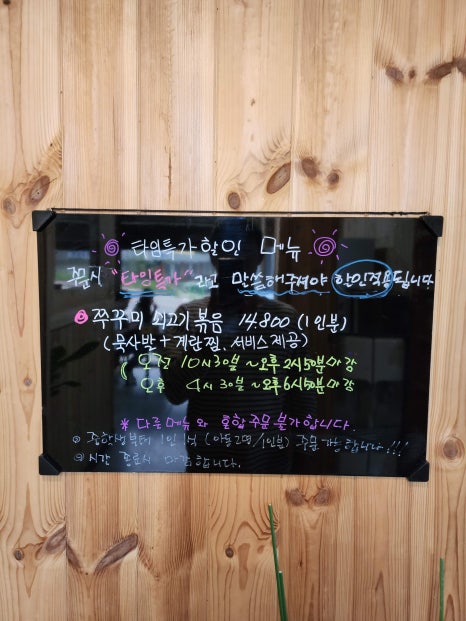 타임특가할인 메뉴
주문시 "타임특가" 라고 말씀해주셔야 할인적용됩니다
쭈꾸미 쇠고기볶음 14.800 (1인분)
(묵사발 + 계란찜. 서비스제공)
오전 10시30분 ~ 오후 2시50분마감
오후 4시 30분 ~ 오후 6시50분마감
* 다른메뉴와 혼합주문불가합니다.
1인 (아동2명/1인분) 주문 합니다!!!
시간 종료시 마감합니다.